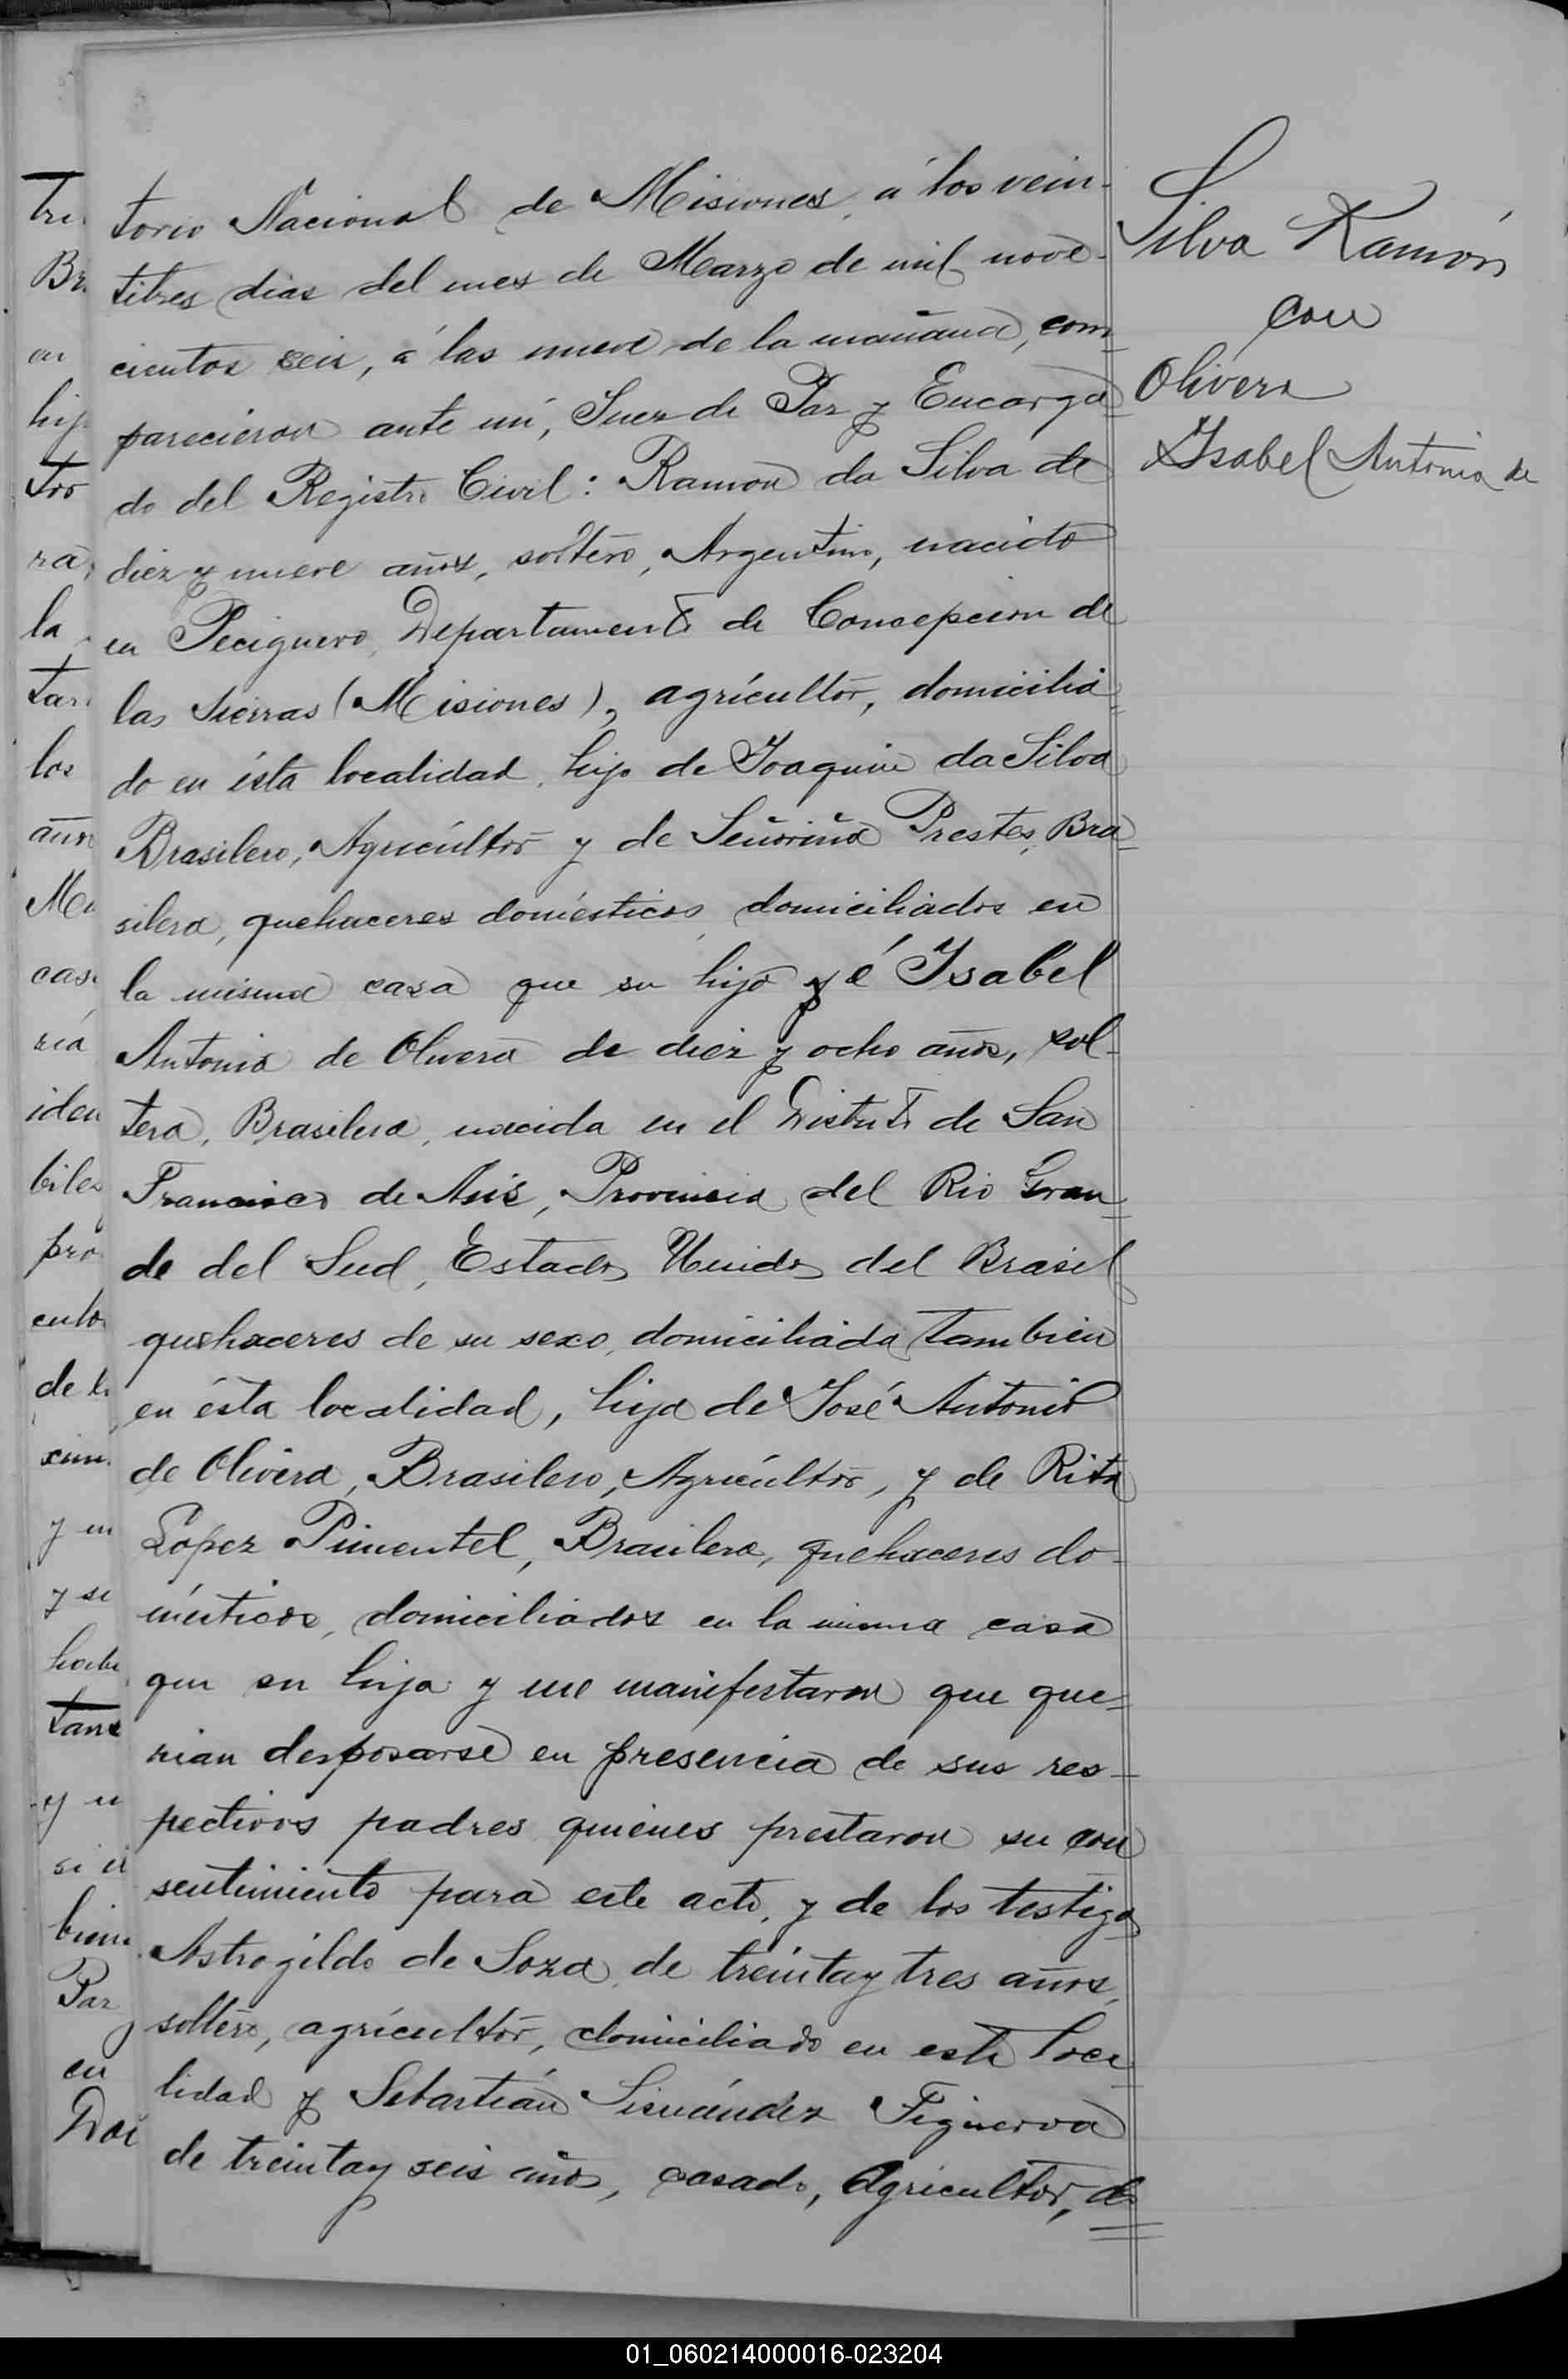 torio Nacional de Misiones, á los vein-
titres dias del mes de Marzo de mil nove-
cientos seis, á las nueve de la mañana, com
parecieron ante mí, Juez de Paz y Encarga
do del Registro Civil: Ramon da Silva de
diez y nueve años, soltero, Argentino, nacido
en Peciguero, Departamento de Concepcion de
las Sierras (Misiones), agrícultor, domicilia
do en ésta localidad, hijo de Joaquin da Silva
Brasilero, Agrícultor y de Señoriña Prestes, Bra
silera, quehaceres domésticos, domiciliados en
la misma casa que su hijo y é Ysabel
Antonia de Olivera de diez y ocho años, sol-
tera, Brasilera, nacida en el Distrito de San
Francisco de Asis, Provincia del Rio Gran
de del Sud, Estados Unidos del Brasil
quehaceres de su sexo, domiciliada tambien
en ésta localidad, hija de José Antonio
de Olivera, Brasilero, Agrícultor, y de Rita
Lopez Pimentel, Brasilera, quehaceres do-
mésticos, domiciliados en la misma casa
que su hija y me manifestaron que que-
rian desposarse en presencia de sus res-
pectivos padres quienes prestaron su con
sentimiento para este acto, y de los testigos
Astrogildo de Soza, de treinta y tres años,
soltero, agrícultor, domiciliado en esta loca
lidad y Sebastián Figueroa
de treinta y seis años, casado, Agricultor, do
Silva Ramón
con
Olivera
Ysabel Antonia de
tri
Br
en
hij
tor
ra,
la
tar
los
años
Ma
cas
ria
iden
biles
pro
de l
y m
y se
tan
y u
si
Paz
en
Doi
01_060214000016-023204